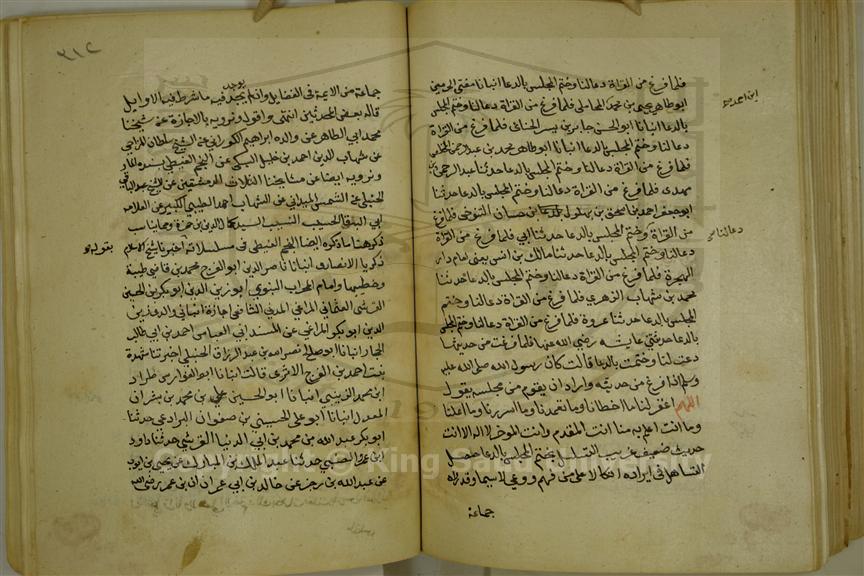 فلما فرغ من القراة دعا لنا وختم المجلس بالدعا انبانا مفتي الحرمين
ابو طاهر يحيى بن محمد المحاملي فلما فرغ من القراة دعا لنا وختم المجلس
بالدعا انبانا ابو الحسن جابر بن يس الحنائي فلما فرغ من القراة
دعا لنا وختم المجلس بالدعا انبانا ابو طاهر محمد بن عبد الرحمن المخلص
فلما فرغ من القراة دعا لنا وختم المجلس بالدعا حدثنا عبد الرحمن بن
مهدى فلما فرغ من القراة دعا لنا وختم المجلس بالدعا حدثنا
ابو جعفر احمد بن اسحق بن بهلول بن حسان التنوخى فلما فرغ
من القراة وختم المجلس بالدعا حدثنا ابي فلما فرغ من القراة
دعا لنا وختم المجلس بالدعا حدثنا مالك بن انس يعنى امام دار
الهجرة فلما فرغ من القراة دعا لنا وختم المجلس بالدعا حدثنا
محمد بن شهاب الزهرى فلما فرغ من القراة دعا لنا وختم
المجلس بالدعا حدثنا عروة فلما فرغ من القراة دعا لنا وختم المجلس
بالدعا حدثتني عايشه رضي الله عنها فلما فرغت من حديثها
دعت لنا وختمت بالدعا قالت كان رسول الله صلى الله عليه
وسلم اذا فرغ من حديثه واراد ان يقوم من مجلسه يقول
اللهم اغفر لنا ما اخطانا وما تعمدنا وما اسررنا وما اعلنا
وما انت اعلم به منا انت المقدم وانت الموخر لا اله الا انت
حديث ضعيف غريب التسلسل بختم المجلس بالدعا حصل
التساهل في ايراده اتكالا على من فهم ووعي لا سيما وقد راه
جماعة
ابن احمد
دعا لنا صح
٢١٢
يوجد
جماعة من الايمة في الفضايل وان لم يجد فيه ما شرط فيه الاوايل
قاله بعض المحدثين انتهى واقول ونرويه بالاجازة عن شيخنا
محمد ابي الطاهر عن والده ابراهيم الكوراني عن الشيخ سلطان المزاحي
عن شهاب الدين احمد بن خليل السبكي عن النجم الغيطي بسنده المار
ونرويه ايضا عن مشايخنا الثلاث الدمشقيين عن الشيخ عبد الباقي
الحنبلي عن الشمس الميداني عن الشهاب احمد الطيبي الكبير عن العلامه
ابي البقا الحسيب النسيب السيد كمال الدين بن حمزة ومما يناسب
ذكره هنا ما ذكره ايضا النجم الغيطى في مسلسلاته اخبرنا شيخ الاسلام
بقوله
ذكريا الانصارى انبانا ناصر الدين ابو الفرج محمد بن قاضي طيبة
وخطيبها وامام المحراب النبوي ابو زين الدين ابو بكر بن الحسين
القرشي العثماني المراغي المدني الشافعي اجازة انباني والدي زين
الدين ابو بكر المراغي عن المسند ابي العباس احمد بن ابي طالب
الحجار انبانا ابو صالح نصر الله بن عبد الرزاق الحنبلى اخبرتنا شهدة
بنت احمد بن الفرج الابرى قالت انبانا ابو الفوارس طراد
ابن محمد الزينبي انبانا ابو الحسين على بن محمد بن بشران
المعدل انبانا ابو على الحسيني بن صفوان البرادعي حدثنا
ابو بكر عبد الله من محمد بن ابي الدنيا القرشي حدثنا داود
ابن عمرو الضبي حدثنا عبد الملك بن المبارك عن يحيى بن ايوب
عن عبد الله بن زحر عن خالد بن ابي عمران ان بن عمر رضى الله
Copyright © King Saud University